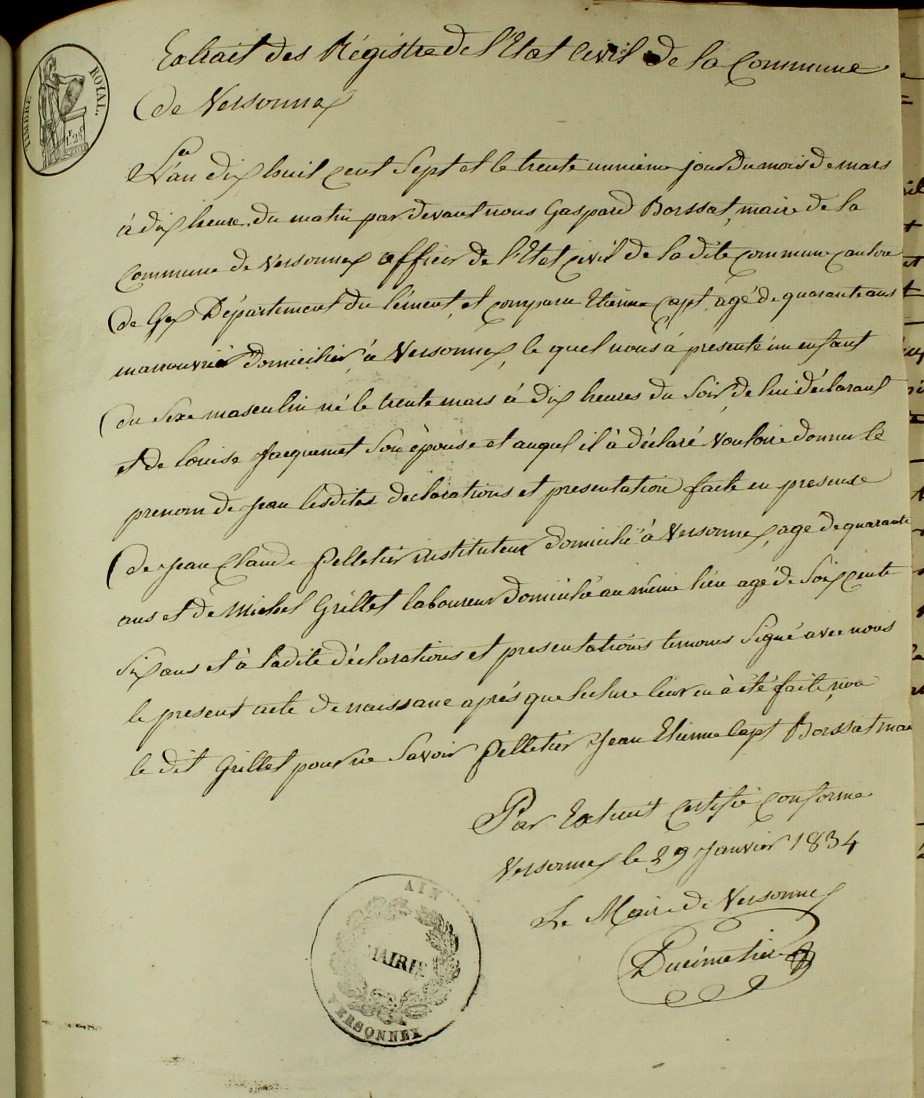 TIMBRE ROYAL.
Extrait des Régistre de l'Etat civil de la Commune
de Versonnex
L'an dix huit cent Sept et le trente unième jour du mois de mars
à dix heure du matin par devant nous Gaspard Borssat, maire de la
Commune de Versonnex officier de l'Etat Civil de la dite Commune Canton
de Gex Département du lément, et comparu Etienne Capt, agé de quarante ans
manouvrier domicilier à Versonnex, le quel nous à présenté un enfant
du Sexe masculin né le trente mars à dix heures du Soir, de lui déclarant
et de Louise Jacquemet Son épouse et auquel il à déclaré Vouloire donner le
prenom de Jean lesdites declarations et presentation faite en presense
de Jean Claude Pelletier instituteur domicilié à Versonnex, agé de quarante
ans et de Michel Grillet laboureur domicilié au même lieu agé de Soixcente
Six ans et à ladite déclarations et presentations temoins Signé avec nous
le present acte de naissance après que lecture leur en à été faite, non
le dit Grillet pour ne Savoir Pelletier Jean Etienne Capt Borssat mai
Par Extrait Certifié conforme
Versonnex le 29 Janvier 1834
Le Maire de Versonnex
Ducimetier
AIN
MAIRIE
VERSONNEX